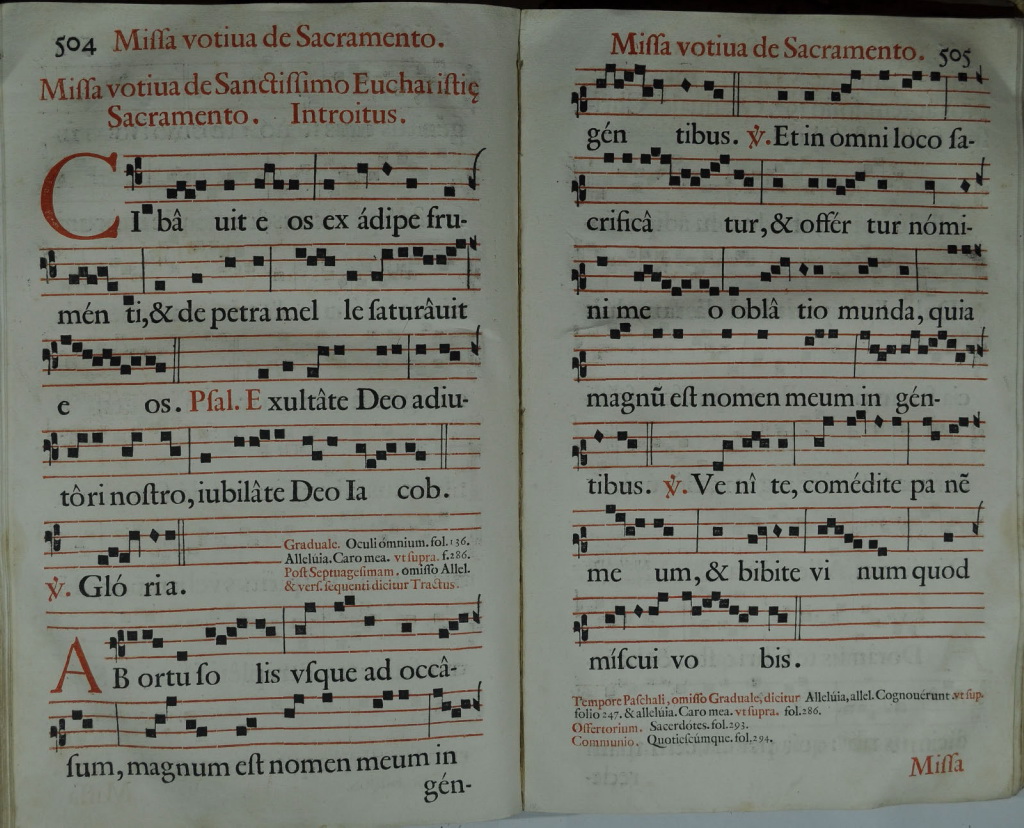 504 Miſſa votiua de Sacramento.
Miſſa votiua de Sanctiſſimo Euchariſtię
Sacramento. Introitus.
CI bâ uit e os ex ádipe fru-
mén ti, & de petra mel le ſaturâuit
e os. Pſal. E xultâte Deo adiu-
tôri noſtro, iubilâte Deo Ia cob.
Graduale. Oculi ómnium. fol. 136.
Allelúia. Caro mea. vt ſupra. f. 286.
Poſt Septuageſimam, omiſſo Allel.
& verſ. ſequenti dicitur Tractus.
℣. Gló ria.
AB ortu ſo lis vſque ad occâ-
ſum, magnum eſt nomen meum in
gén-
Miſſa votiua de Sacramento. 505
gén tibus. ℣. Et in omni loco ſa-
crificâ tur, & offér tur nómi-
ni me o oblâ tio munda, quia
magnũ eſt nomen meum in gén-
tibus. ℣. Ve nî te, comédite pa nẽ
me um, & bibite vi num quod
míſcui vo bis.
Tempore Paſchali, omiſſo Graduale, dicitur Allelúia, allel. Cognouérunt vt ſup.
folio 247. & allelúia. Caro mea. vt ſupra. fol. 286.
Offertorium. Sacerdótes. fol. 293.
Communio. Quotieſcúmque. fol. 294.
Miſſa